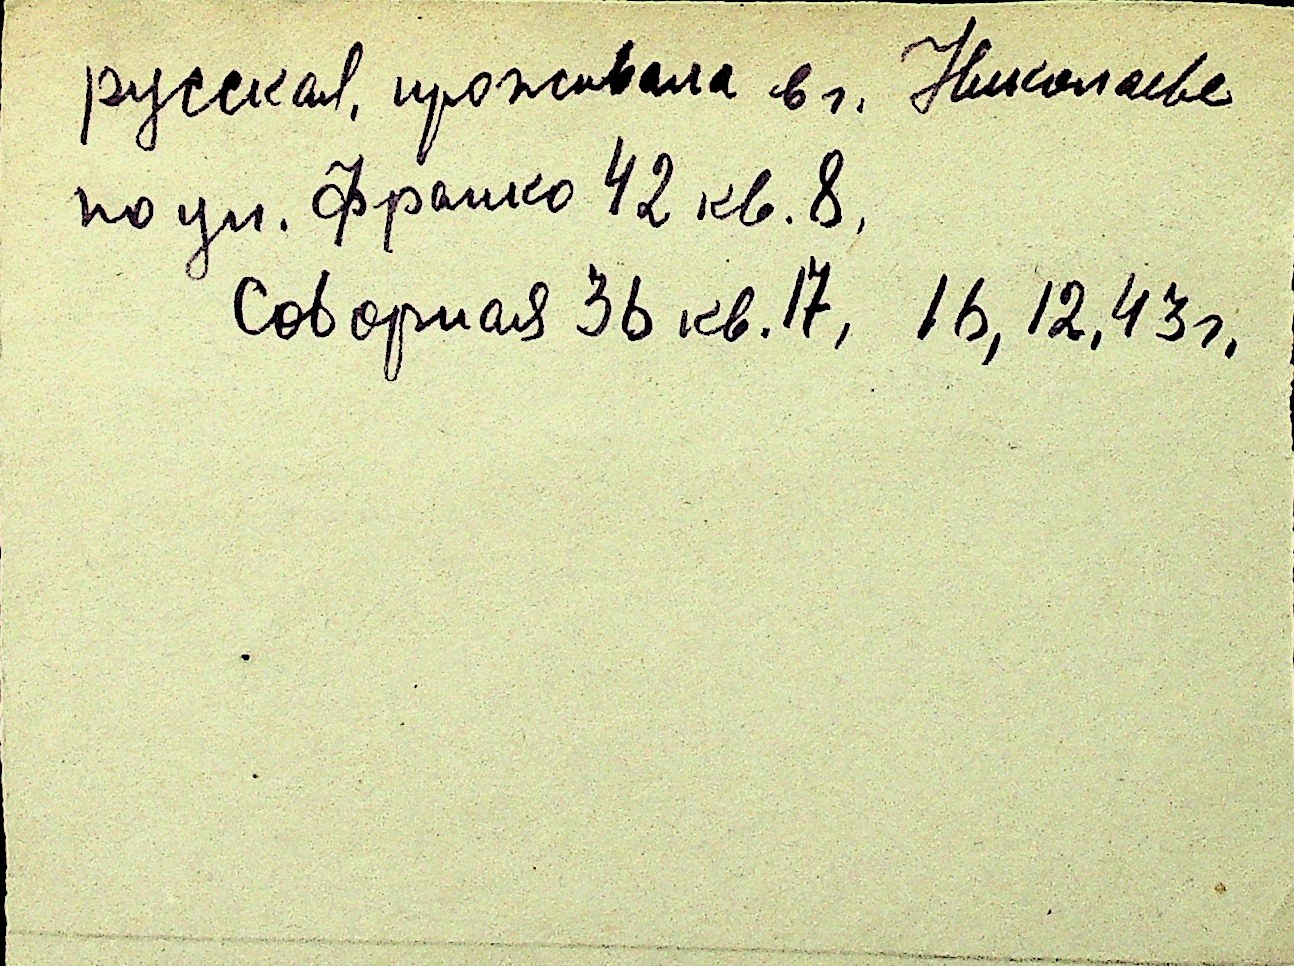 русская, проживала в г. Николаеве
по ул. Франко 42 кв. 8,
Соворная 36 кв. 17, 16, 12.43г.